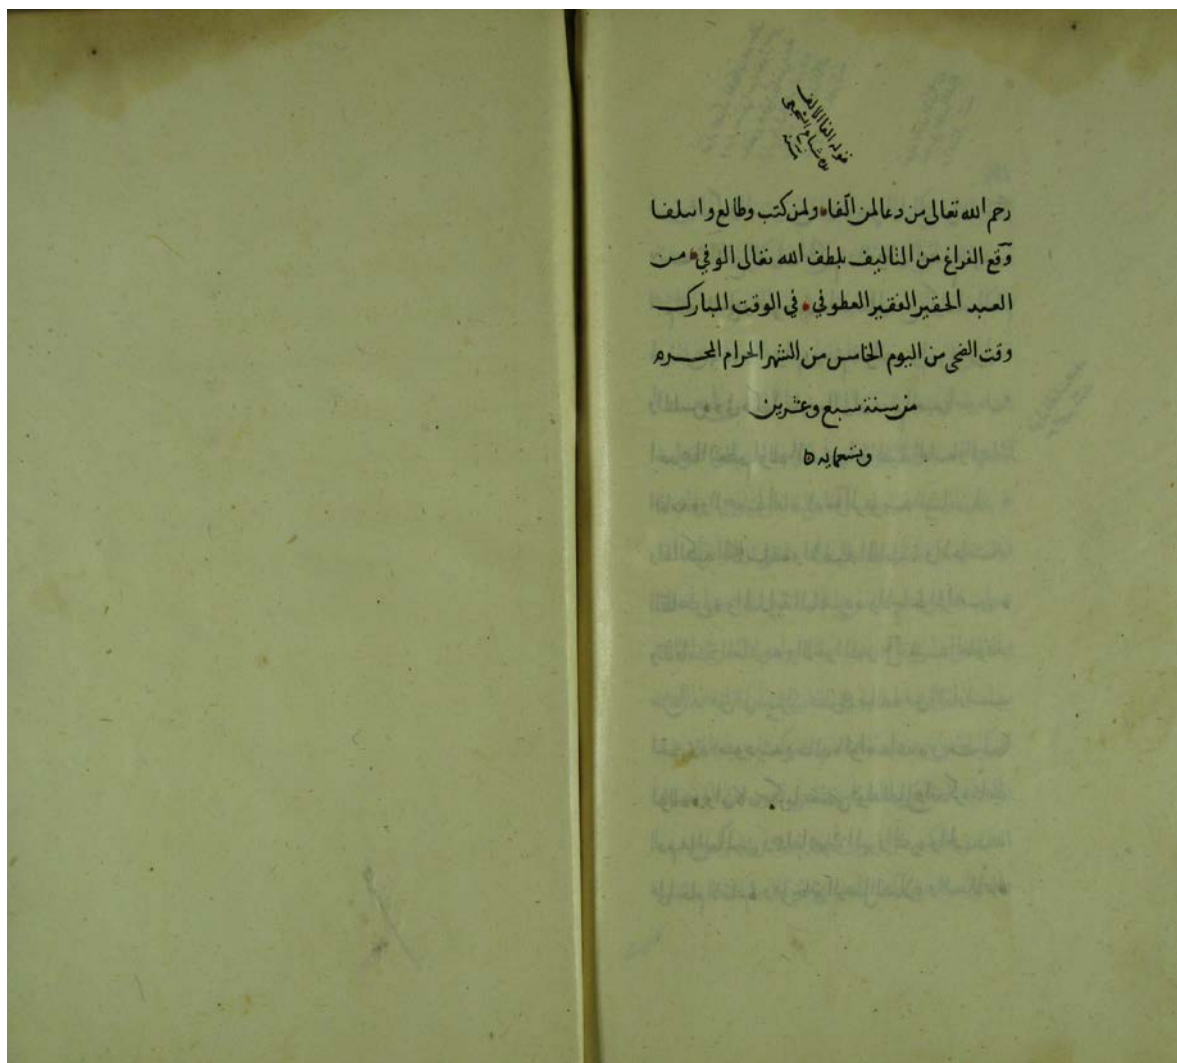 قوله الفا الالف
للاشباع
رحم الله تعالى من دعا لمن الّفا ولمن كتب وطالع واسلفا
وقع الفراغ من التاليف بلطف الله تعالى الوفي من
العبد الحقير الفقير العطوفي في الوقت المبارك
وقت الضحى من اليوم الخامس من الشهر الحرام المحرم
من سنة سبع وعشرين
وتسعمايه